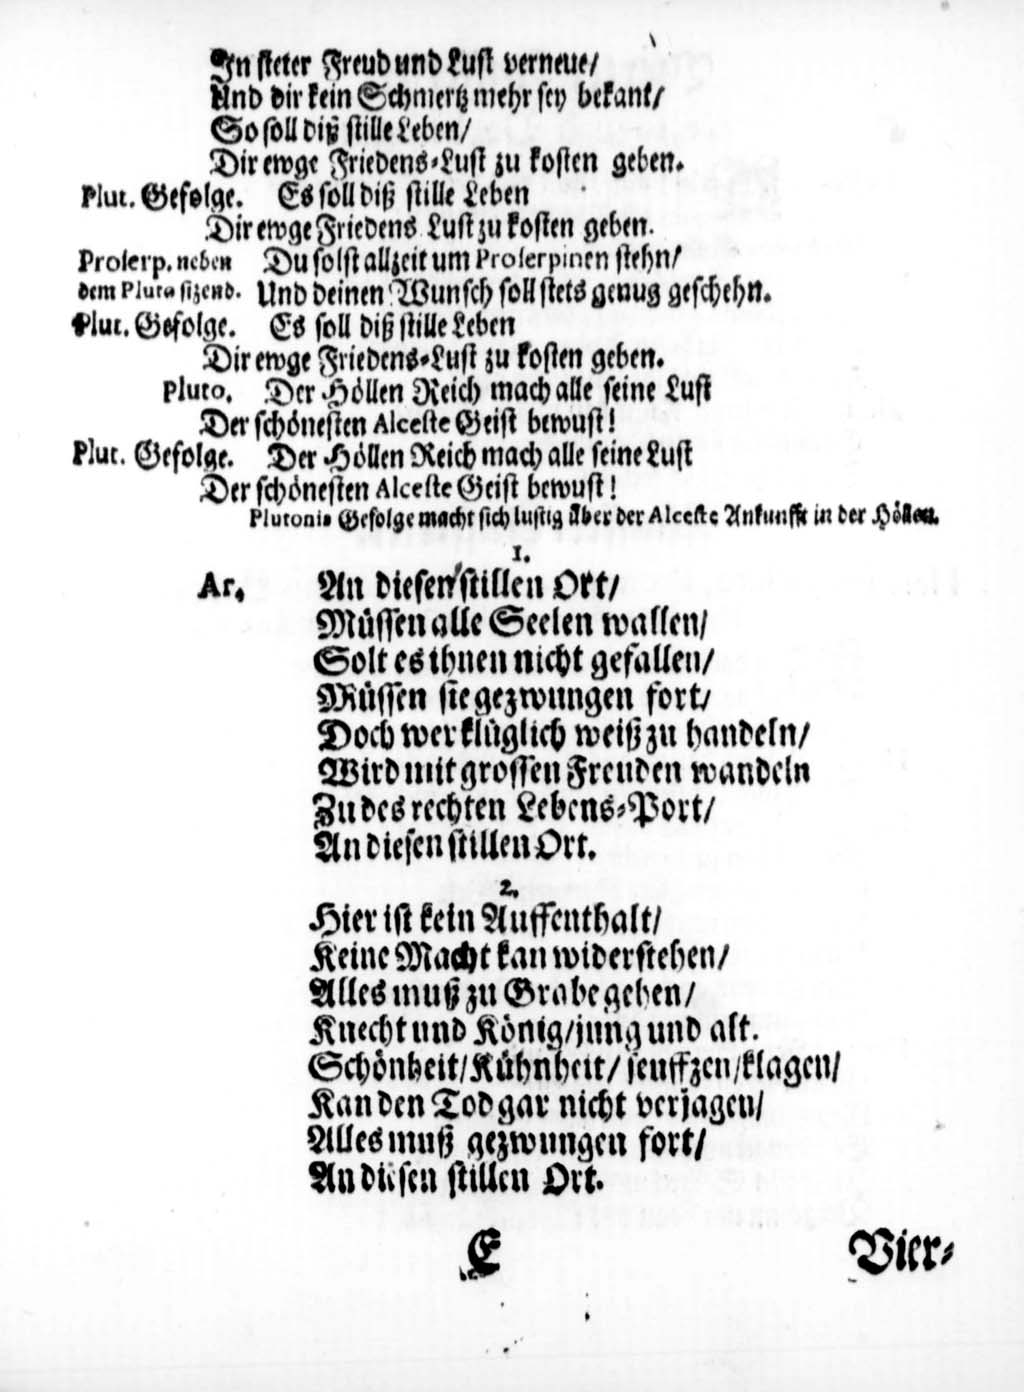 In steter Freud und Lust verneue/
Und dir kein Schmertz mehr sey bekant/
So soll diß stille Leben/
Dir ewge Friedens-Lust zu kosten geben.
Plut. Gefolge. Es soll diß stille Leben
Dir ewge Friedens Lust zu kosten geben.
Proserp. neben Du solst allzeit um Proserpinen stehn/
dem Pluto sizend. Und deinen Wunsch soll stets genug geschehn.
Plut. Gefolge. Es soll diß stille Leben
Dir ewge Friedens-Lust zu kosten geben.
Pluto. Der Höllen Reich mach alle seine Lust
Der schönesten Alceste Geist bewust!
Plut. Gefolge. Der Höllen Reich mach alle seine Lust
Der schönesten Alceste Geist bewust!
Plutonis Gefolge macht sich lustig über der Alceste Ankunfft in der Höllen.
1.
Ar. An diesen stillen Ort/
Müssen alle Seelen wallen/
Solt es ihnen nicht gefallen/
Müssen sie gezwungen fort/
Doch wer klüglich weiß zu handeln/
Wird mit grossen Freuden wandeln
Zu des rechten Lebens-Port/
An diesen stillen Ort.
2.
Hier ist kein Auffenthalt/
Keine Macht kan widerstehen/
Alles muß zu Grabe gehen/
Knecht und König/jung und alt.
Schönheit/Kühnheit/ seuffzen/klagen/
Kan den Tod gar nicht verjagen/
Alles muß gezwungen fort/
An diesen stillen Ort.
E Vier-